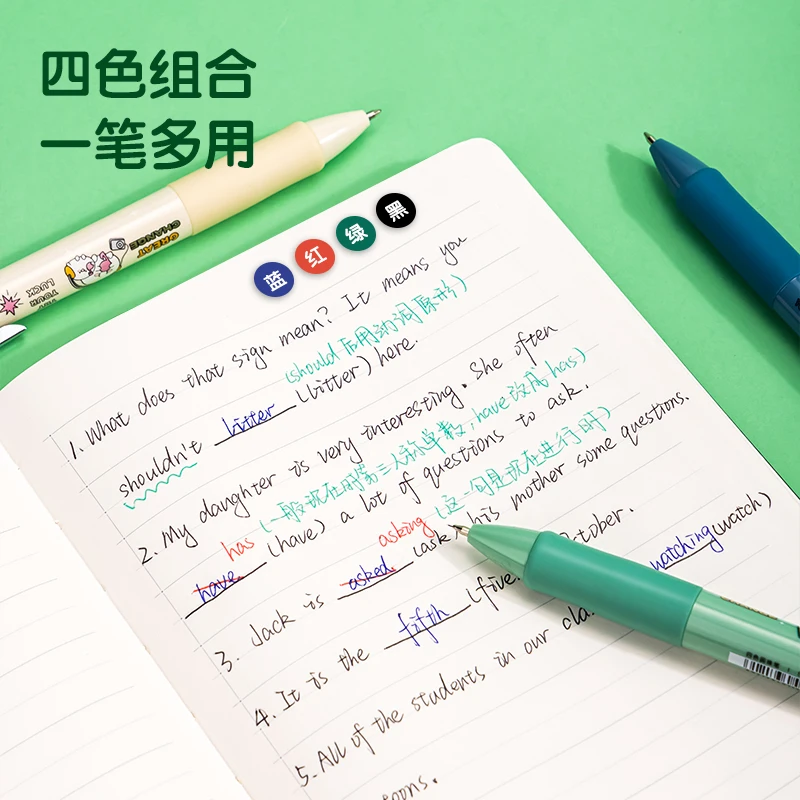 四色组合
一笔多用
蓝 红 绿 黑
GREAT
CHANGE
YOUR
LUCK
1. What does that sign mean? It means you
(should后用动词原形)
shouldn't litter (litter) here.
2. My daughter is very interesting. She often
(一般现在时第三人称单数, have改成has)
has
have (have) a lot of questions to ask.
asking (这一句是现在进行时)
3. Jack is asked (ask) his mother some questions.
4. It is the fifth (five October.
5. All of the students in our cla watching (watch)